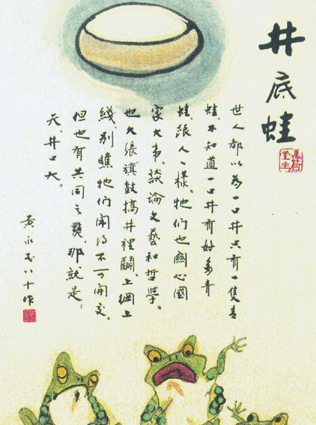 井底蛙
世人都以為一口井只有一隻青
蛙不知道一口井有好多青
蛙跟人一樣牠们也關心國
家大事談論文藝和哲學
也大張旗鼓搞井裡鬪上綱上
綫别瞧牠们闹得不可開交
但也有共同之 那就是
天井口大
黄永玉八十作